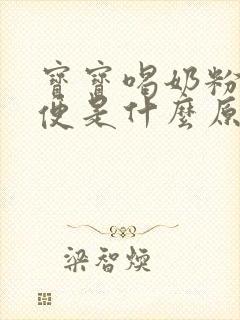 寶寶喝奶粉
便是什麼原
梁智煥